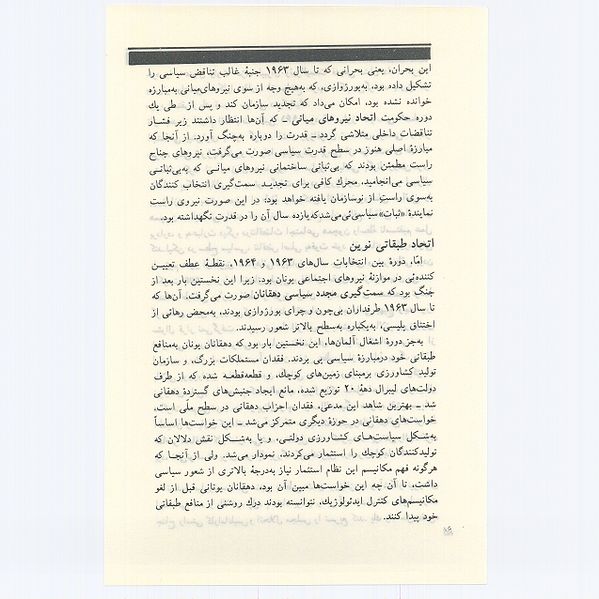 این بحران، یعنی بحرانی که تا سال ۱۹۶۳ جنبهٔ غالب تناقض سیاسی را
تشکیل داده بود، به‌بورژوازی، که به‌هیچ وجه از سوی نیروهای‌میانی به‌مبارزه
خوانده نشده بود، امکان می‌داد که تجدید سازمان کند و پس از طی یك
دوره حکومت اتحاد نیروهای میانی ــ که آن‌ها انتظار داشتند زیر فشار
تناقضات داخلی متلاشی گردد ــ قدرت را دوباره به‌چنگ آورد. از آنجا که
مبارزهٔ اصلی هنوز در سطح قدرت سیاسی صورت می‌گرفت، نیروهای جناح
راست مطمئن بودند که بی‌ثباتی ساختمانی نیروهای میانـی که به‌بی‌ثباتـی
سیاسی می‌انجامید، محرك کافی برای تجدیـد سمت‌گیری انتخاب کنندگان
به‌سوی راستِ از نوسازمان یافته خواهد بود؛ در این صورت نیروی راست
نمایندهٔ «ثبات» سیاسی‌ئی‌می‌شدکه‌یازده سال آن را در قدرت نگهداشته بود.
اتحاد طبقاتی نوین
امّا، دورهٔ بین انتخابات سال‌های ۱۹۶۳ و ۱۹۶۴، نقطهٔ عطف تعییـن
کننده‌ئی در موازنهٔ نیروهای اجتماعی یونان بود. زیرا این نخستین بار بعد از
جنگ بود که سمت‌گیری مجدد سیاسی دهقانان صورت می‌گرفت، آن‌ها که
تا سال ۱۹۶۳ طرفداران بی‌چون و چرای بورژوازی بودند، به‌محض رهائی از
اختناق پلیسی، به‌یکباره به‌سطح بالاتر شعور رسیدند.
به‌جز دورهٔ اشغال آلمان‌ها، این نخستین بار بود که دهقانان یونان به‌منافع
طبقاتی خود درمبارزهٔ سیاسی پی بردند. فقدان مستملکات بزرگ، و سازمان
تولید کشاورزی برمبنای زمین‌های کوچك، و قطعه‌قطعـه شده که از طرف
دولت‌های لیبرال دههٔ ۲۰ توزیع شده، مانع ایجاد جنبش‌های گستردهٔ دهقانی
شد ــ بهترین شاهد این مدعی، فقدان احزاب دهقانی در سطح ملّی است.
خواست‌های دهقانی در حوزهٔ دیگری متمرکز می‌شد ــ این خواست‌ها اساساً
به‌شکل سیاست‌هـای کشـاورزی دولتـی، و یا به‌شـکل نقش دلالان که
تولیدکنندگان کوچك را استثمار می‌کردند، نمودار می‌شد. ولی از آنجـا که
هرگونه فهم مکانیسم این نظام استثمار نیاز به‌درجهٔ بالاتری از شعور سیاسی
داشت، تا آن چه این خواست‌ها مبین آن بود، دهقانان یونانی قبل از لغو
مکانیسم‌های کنترل ایدئولوژیك، نتوانسته بودند درك روشنی از منافع طبقاتی
خود پیدا کنند.